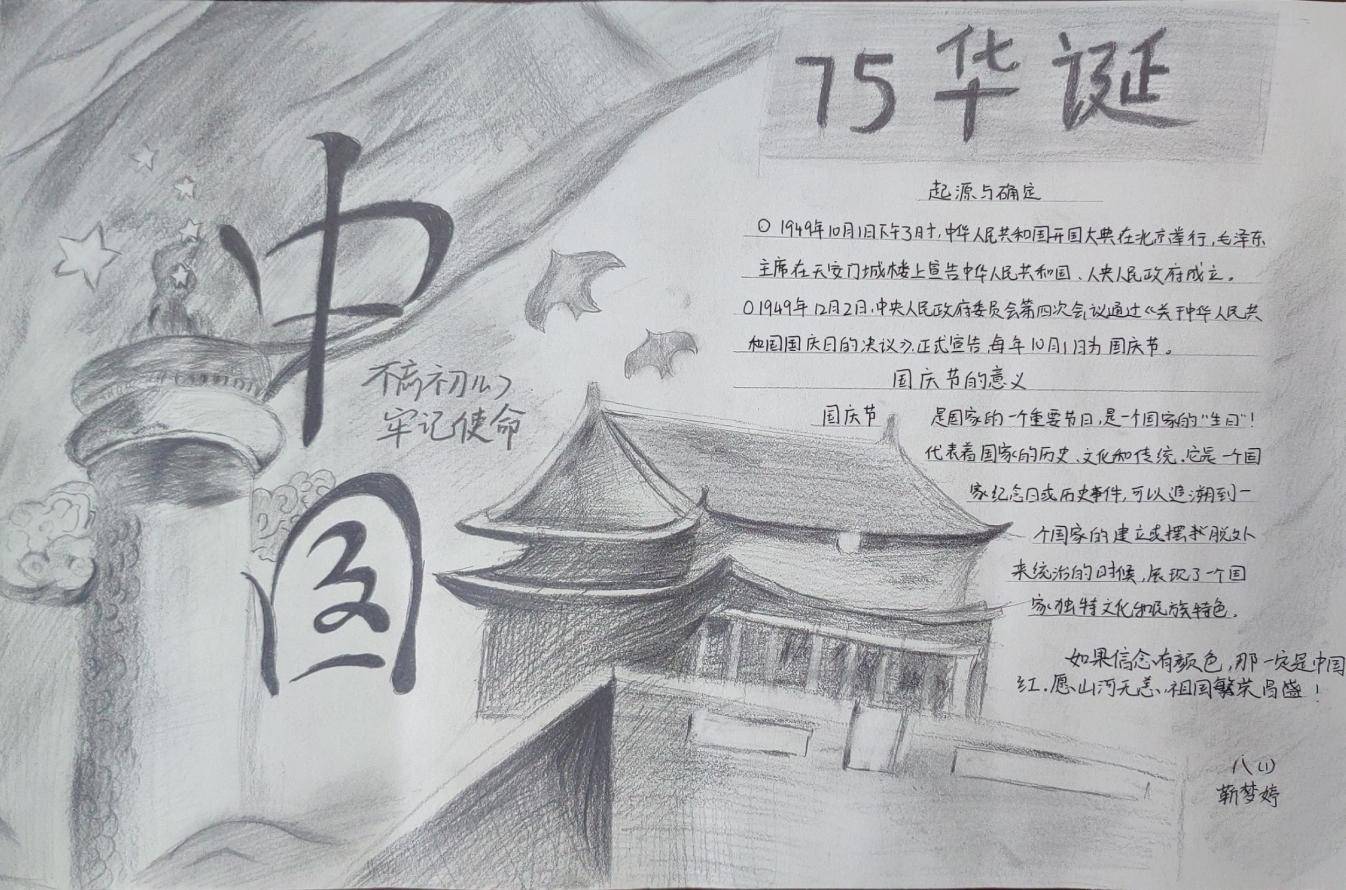 75华诞
中国
不忘初心
牢记使命
起源与确定
○1949年10月1日下午3时,中华人民共和国开国大典在北京举行,毛泽东
主席在天安门城楼上宣告中华人民共和国、人央人民政府成立。
○1949年12月2日,中央人民政府委员会第四次会议通过《关于中华人民共
和国国庆日的决议》,正式宣告,每年10月1日为国庆节。
国庆节的意义
国庆节 是国家的一个重要节日,是一个国家的"生日"!
代表着国家的历史、文化和传统.它是一个国
家纪念日或历史事件,可以追溯到一
个国家的建立或摆脱外
来统治的时候,展现了一个国
家独特文化和民族特色。
如果信念有颜色,那一定是中国
红.愿山河无恙、祖国繁荣昌盛!
八(1)
靳梦婷